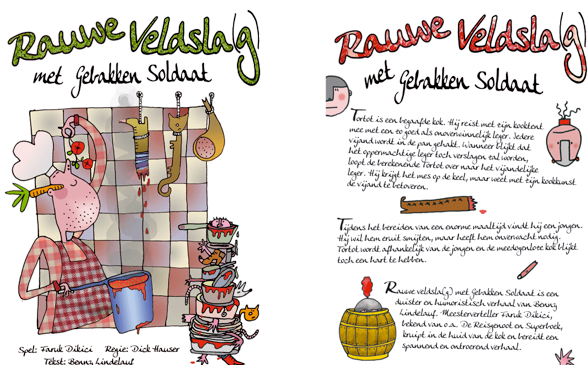 Rauwe Veldsla(g)
met Gebakken Soldaat
Spel: Faruk Dikici Regie: Dick Hauser
Tekst: Benny Lindelauf
Rauwe Veldsla(g)
met Gebakken Soldaat
Tortot is een begaafde kok. Hij reist met zijn kooktent
mee met een zo goed als onoverwinnelijk leger. Iedere
vijand wordt in de pan gehakt. Wanneer blijkt dat
het oppermachtige leger toch verslagen zal worden,
loopt de berekenende Tortot over naar het vijandelijke
leger. Hij krijgt het mes op de keel, maar weet met zijn kookkunst
de vijand te betoveren.
Tijdens het bereiden van een enorme maaltijd vindt hij een jongen.
Hij wil hem eruit smijten, maar heeft hem onverwacht nodig.
Tortot wordt afhankelijk van de jongen en de meedogenloze kok blijkt
toch een hart te hebben.
Rauwe veldsla(g) met Gebakken Soldaat is een
duister en humoristisch verhaal van Benny
Lindelauf. Meesterverteller Faruk Dikici,
bekend van o.a. De Reisgenoot en Superboek,
kruipt in de huid van de kok en bereidt een
spannend en ontroerend verhaal.